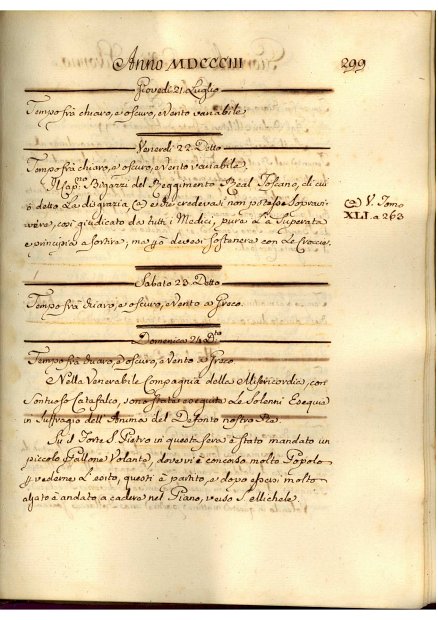 Anno MDCCCIII 299
Giovedì 21 Luglio
Tempo frà chiaro, e oscuro, e Vento variabile
Venerdì 22 Detto
Tempo frà chiaro, e oscuro, e Vento variabile.
Il Cap.no Bigazzi del Reggimento Real Toscano, di cui
è detto La disgrazia (a) e che credevasi non potesse Sopravi-
vere, così giudicato da tutti i Medici, pure L'à Superata
e principia a Sortire, ma però devesi Sostenere con Le Crucce.
(a) V. Tomo
XLI. a 263
Sabato 23 Detto
Tempo frà chiaro, e oscuro, e Vento a Greco.
Domenica 24 d.to
Tempo frà chiaro, e oscuro, e Vento a Greco.
Nella Venerabile Compagnia della Misericordia, con
Sontuoso Catafalco, sono state eseguite Le Solenni Esequie
in Suffragio dell'Anima del Defonto nostro Re.
Su il Forte S. Pietro in questa sera è stato mandato un
piccolo Pallone Volante, dove vi è concorso molto Popolo
p vederne L'esito, questi è partito, e dopo essersi molto
alzato è andato a cadere nel Piano, verso S. Michele.